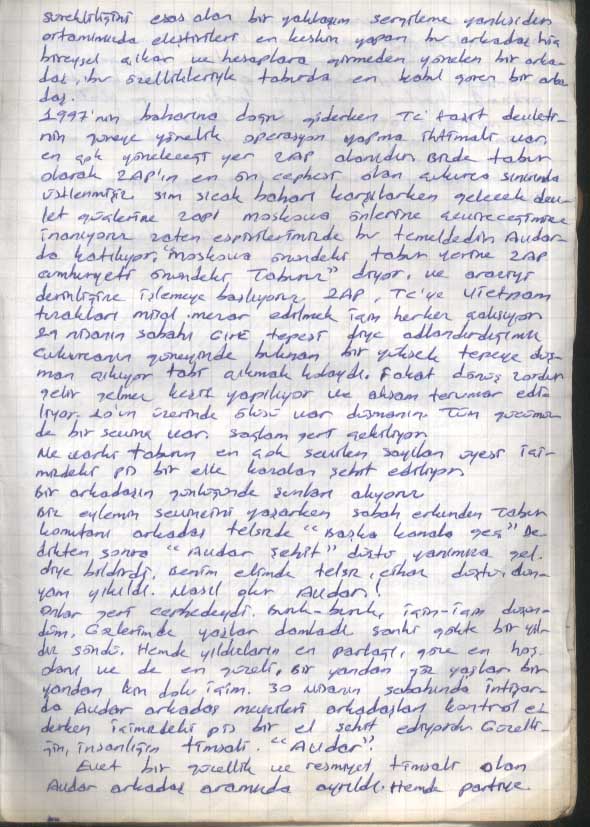 sürekliliğini esas alan bir yaklaşım sergileme yanlısıdır
ortamımızda eleştirileri en keskin yapan bu arkadaş hiç
bireysel çıkar ve hesaplara girmeden yönelen bir arka
daş, bu özellikleriyle taburda en kabul gören bir arka
daş.
1997'nin baharına doğru giderken TC faşit devleti-
nin güneye yönelik operasyon yapma ihtimali var.
en çok yöneleceği yer ZAP alanıdır. Bizde tabur
olarak ZAP'ın en ön cephesi olan çukurca sınırında
üstlenmişiz sım sıcak baharı karşılarken gelecek dev-
let güçlerine zapı moskova önlerine çevireceğimize
inanıyoruz zaten esprilerimizde bu temeldedir Audar-
da katılıyor, "moskova önündeki tabur yerine ZAP
cumhuriyeti önündeki Taburuz" diyor, ve araziyi
derinliğine işlemeye başlıyoruz, ZAP, TC'ye Vietnam
toprakları misal mezar edilmek için herkes çalışıyor
29 nisanın sabahı Girê tepesi diye adlandırdığımız
Çukurcanın güneyinde bulunan bir yüksek tepeye düş-
man çıkıyor tabi çıkmak kolaydı. Fakat dönüş zordur
gelir gelmez keşif yapılıyor ve akşam tarumar edi-
liyor. 20'ın üzerinde ölüsü var düşmanın. Tüm gücümüz
de bir sevinç var. sağlam geri çekiliyor.
Ne varki taburun en çok sevilen sayılan üyesi içi-
mizdeki pis bir elle karadan şehit ediliyor.
Bir arkadaşın günlüğünde şunları alıyoruz
Biz eylemin sevincini yaşarken sabah erkenden Tabur
komutanı arkadaş telsizde "Başka kanala geç" De
dikten sonra "Audar şehit" düştü yanımıza gel.
diye bildirdi. Benim elimde telsiz, cihaz düştü, dün-
yam yıkıldı. Nasıl olur Audar!
Onlar geri cephedeydi. Buruk-buruk, için-için düşün-
düm. Gözlerimde yaşlar damladı sanki gökte bir yıl-
dız söndü. Hemde yıldızların en parlağı, göze en hoş
olanı ve de en güzeli. Bir yandan göz yaşlar bir
yandan kin dolu içim. 30 Nisanın sabahında intişar-
da Audar arkadaş mevzileri arkadaşları kontrol e-
derken içimizdeki pis bir el şehit ediyordu. Güzelli-
ğin, insanlığın timsali. "Audar"!
Evet bir güzellik ve resmiyet timsali olan
Audar arkadaş aramızda ayrıldı. Hemde partiye